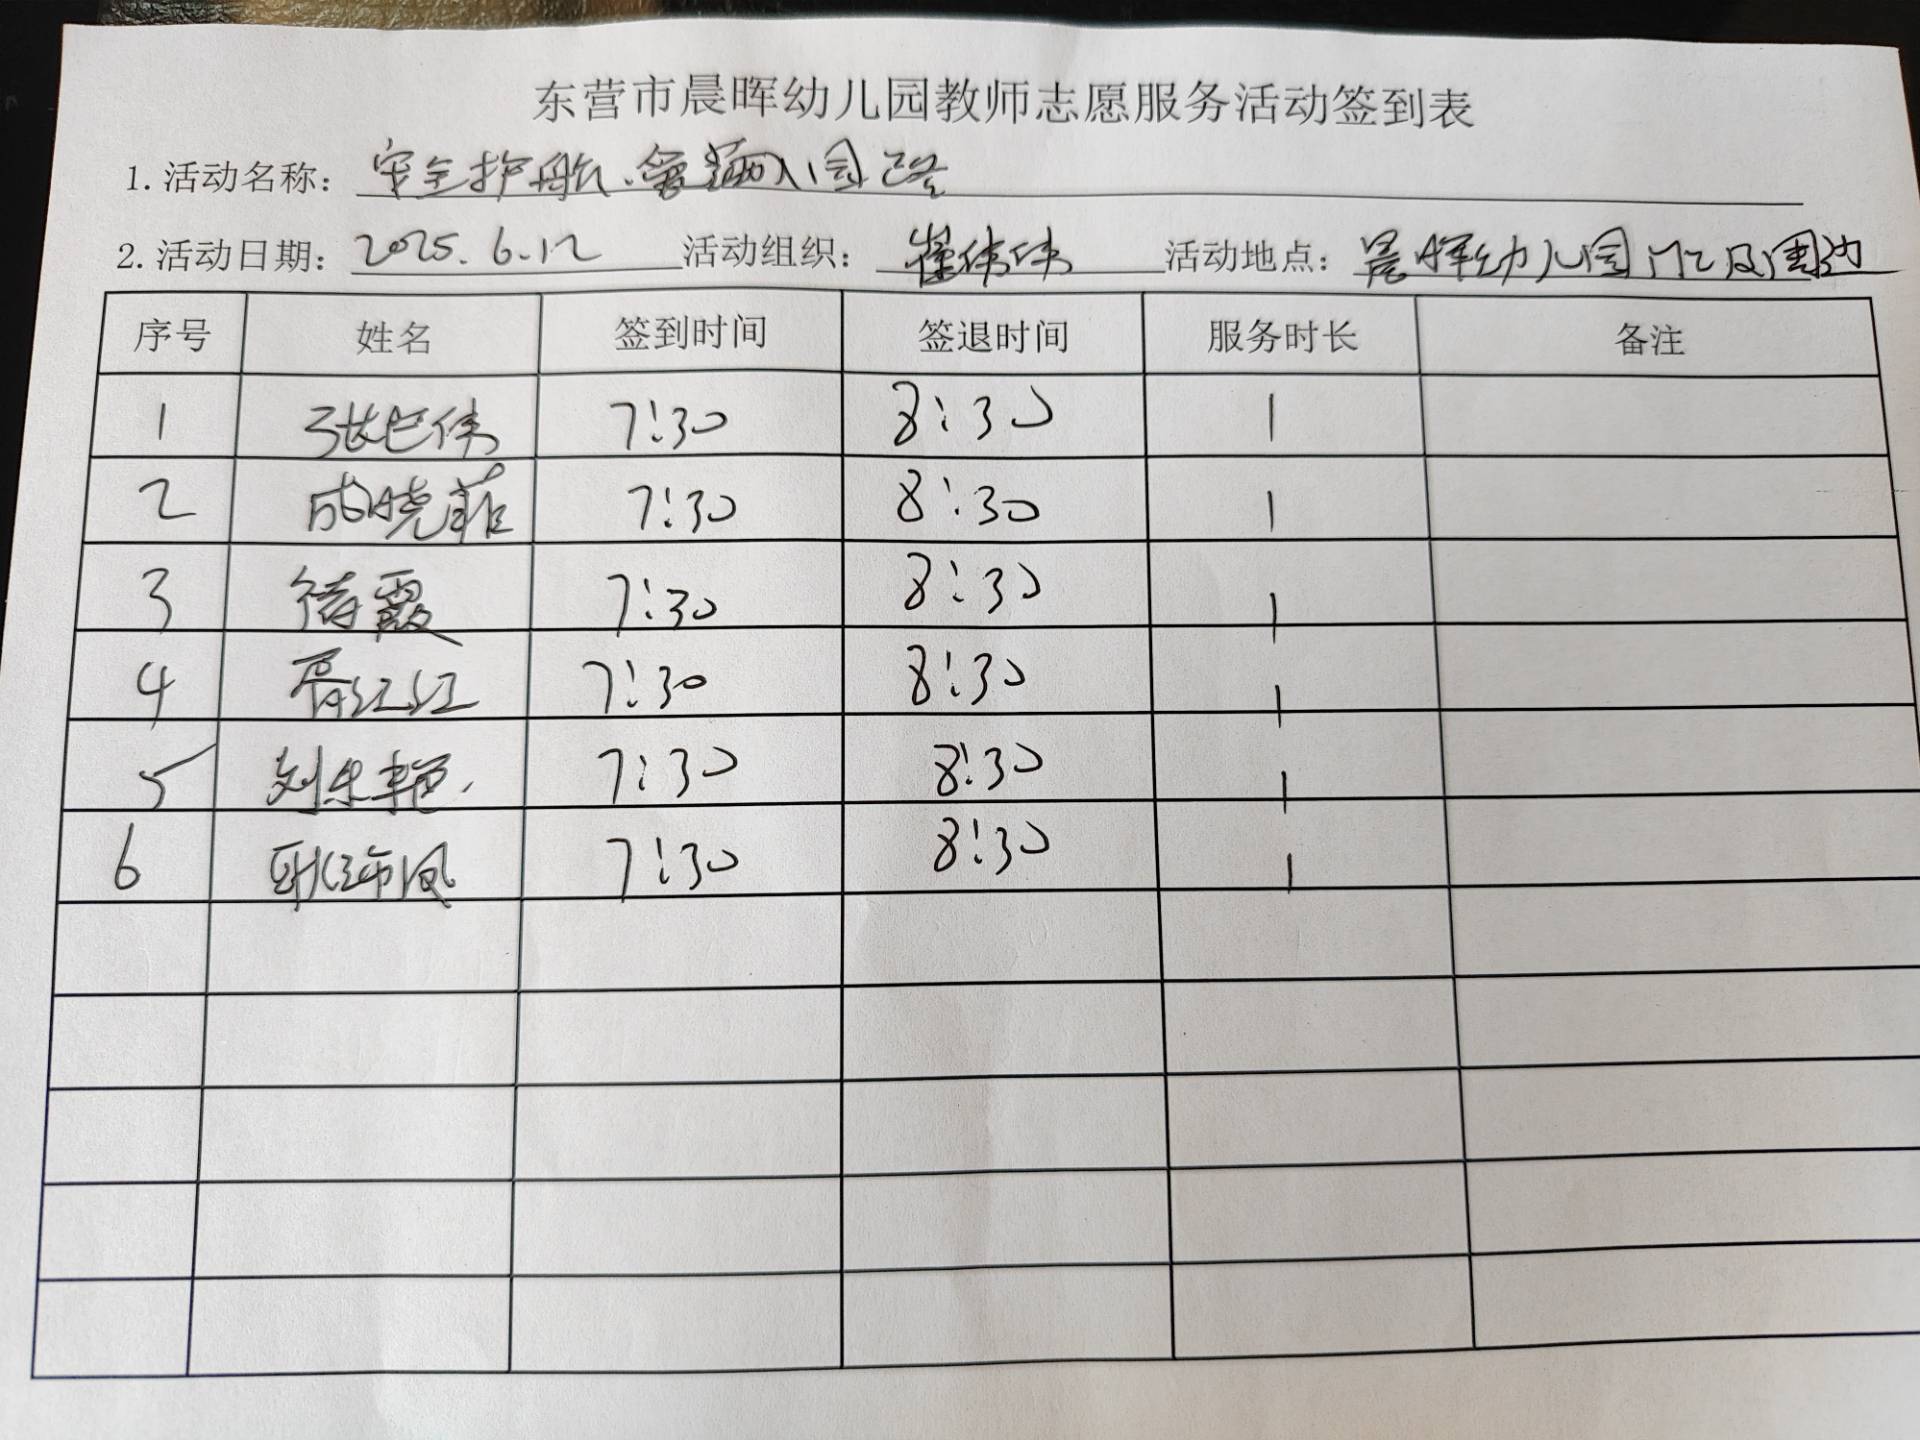 东营市晨晖幼儿园教师志愿服务活动签到表
1.活动名称：安全护航、入园路
2.活动日期：2025.6.12 活动组织：崔伟伟 活动地点：晨晖幼儿园门口及周边
序号 姓名 签到时间 签退时间 服务时长 备注
1 张 伟 7:30 8:30 1
2 成晓菲 7:30 8:30 1
3 徐霞 7:30 8:30 1
4 胥红红 7:30 8:30 1
5 刘 艳 7:30 8:30 1
6 凤 7:30 8:30 1